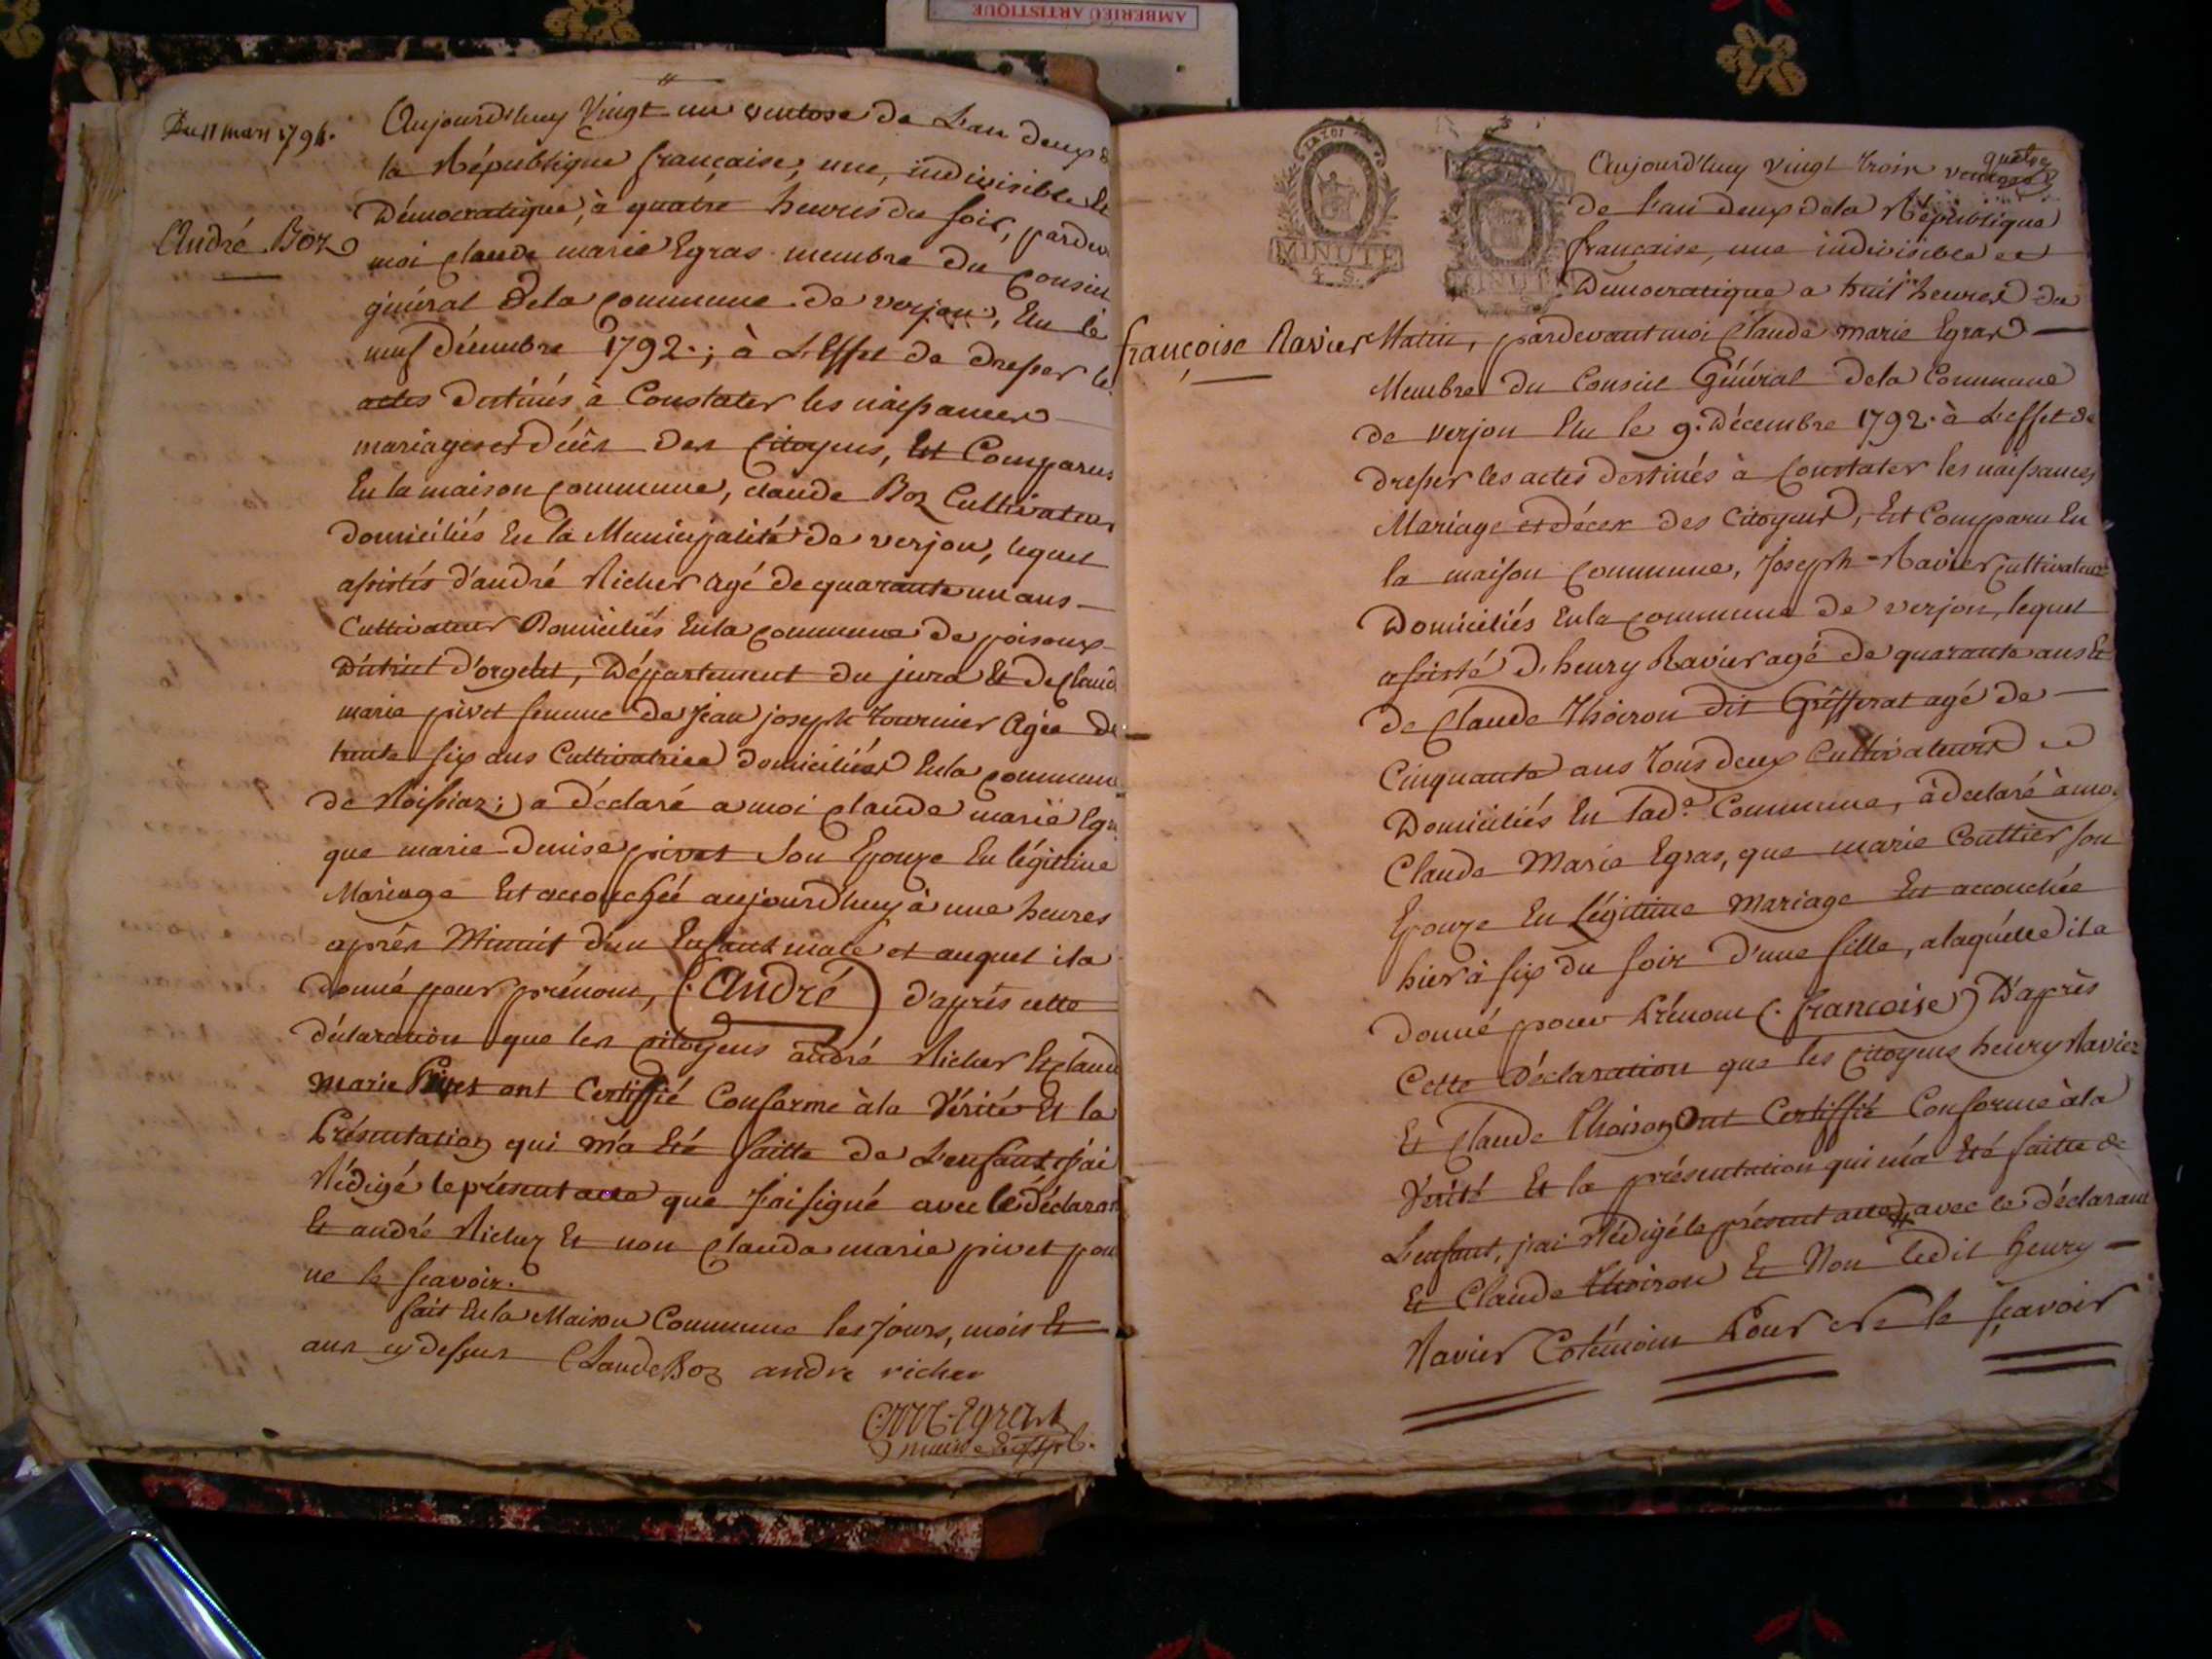 AMBERIEU ARTISTIQUE
Du 11 mars 1794.
Aujourd'huy Vingt un ventose de L'an deux d
la République française, une, indivisible Et
Démocratique, à quatre heures du soir, pardev
André Boz
moi Claude marie Egras membre du Conseil
général dela Commune de verjon, Elu le
neuf décembre 1792 ; à L'Effet de dresser les
actes destinés à Constater les naissances
mariages et décès des Citoyens, Est Comparus
En la maison Commune, claude Boz Cultivateur
domiciliés En la Municipalité de verjon, lequel
assistés d'andré Richer agé de quarante un ans
Cultivateur Domiciliés Enla Commune de poisoux
District d'orgelet, Département du jura Et de Claud
marie pivet femme de Jean joseph tournier Agée de
trente six ans Cultivatrice domiciliées Enla Commune
de Roissiaz ; a déclaré a moi Claude marie Egr
que marie denise pivet Son Epouze En légitime
Mariage Est accouchée aujourd'huy à une heures
après Minuit d'un Enfant male et auquel il a
donné pour prénom, (. André) d'après cette
déclaration que les Citoyens andré Richer Et Claud
Marie Pivet ont Certiffié Conforme à la Vérité Et la
Présentation qui m'a Eté faitte de L'enfant j'ai
Rédigé le présent acte que J'ai signé avec le déclarant
Et andré Richer Et non Claude marie pivet pour
ne le scavoir.
fait Enla Maison Commune les Jours, mois Et
ans cy dessus Claude Boz andre richer
C M Egras
MINUTE
4. S.
MINUTE
quatre
Aujourd'huy vingt trois ventose
de L'an deux dela République
française, une indivisible et
Démocratique a huit heures du
françoise Ravier
Matin, pardevant moi Claude marie Egras
Membre du Conseil Général dela Commune
de verjon Elu le 9. Décembre 1792. à L'effet de
dresser les actes destinés à Constater les naissances
Mariage et décex des Citoyens, Est Comparu En
la maison Commune, Joseph Ravier Cultivateur
Domiciliés Enla Commune de verjon, lequel
assisté D. henry Ravier agé de quarante ans Et
de Claude Thoiron dit Grifferat agé de
Cinquante ans Tous deux Cultivateurs et
Domiciliés En lad.e Commune, à déclaré à moi
Claude Marie Egras, que marie Couttier son
Epouze En Légitime Mariage Est accouchée
hier à six du soir d'une fille, alaquélle il a
donné pour Prénom (. françoise) D'après
Cette Déclaration que les Citoyens henry Ravier
Et Claude Thoiron Ont Certiffié Conforme à la
Vérité Et la présentation qui m'a Eté faitte de
L'enfant, j'ai Rédigé le présent acte avec le déclarant
Et Claude Thoiron Et Non Ledit henry
Ravier Cotémoin Pour Ne le scavoir